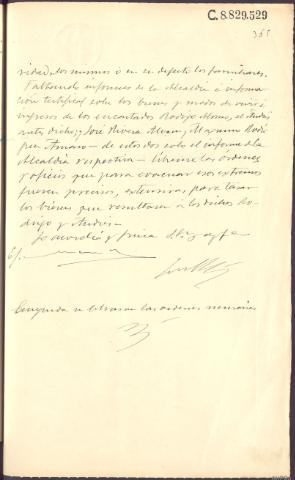 C.8.829.529
365
vidad, los mismos ó en su defecto los familiares.
Faltando informes de la Alcaldia é informa-
ción testifical sobre los bienes y modos de vivir é
ingresos de los encartados Rodrigo Alonso, el Andrés
antes dicho, y José Rivera Alvarez,
Amaro = de estos dos solo el informe de la
Alcaldia respectiva = librense las ordenes
y oficios que para evacuar esos extremos
fueren precisos, extensivas para tasar
los bienes que resultaren á los dichos Ro-
drigo y Andrés =
Lo acordó y firma S.S. doy fe
E/.
Enseguida se libraron las ordenes necesarias